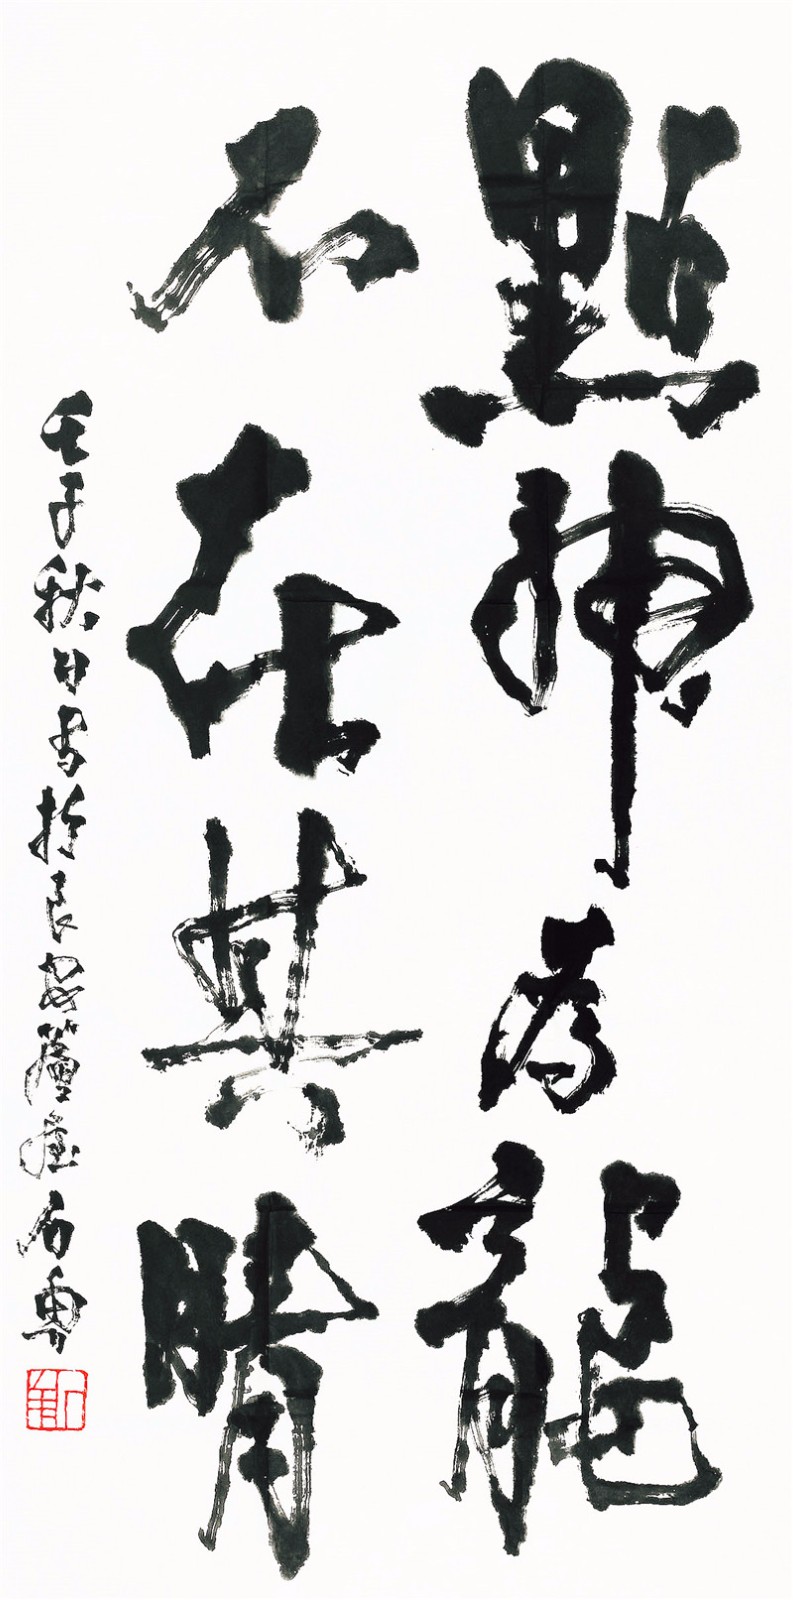 點神為龍
不在其睛
壬子秋日書於長安 石魯